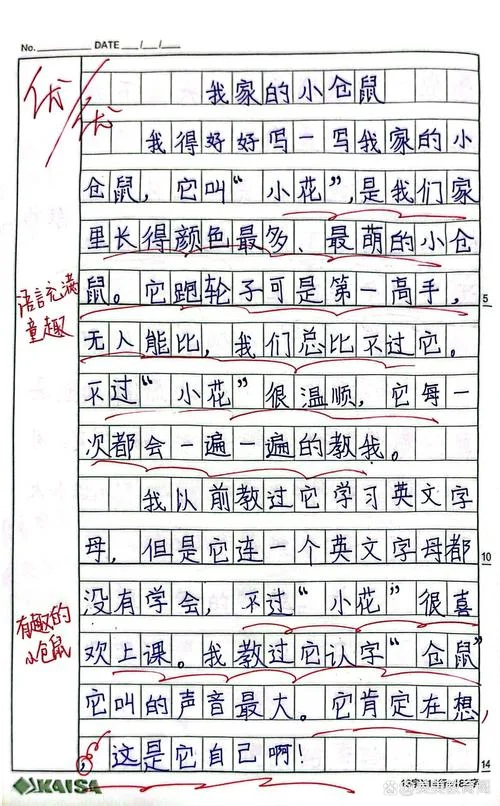 No.
DATE / /
优/优
我家的小仓鼠
我得好好写一写我家的小
仓鼠，它叫“小花”，是我们家
里长得颜色最多、最萌的小仓
鼠。它跑轮子可是第一高手，
5
语言充满
童趣
无人能比，我们总比不过它。
不过“小花”很温顺，它每一
次都会一遍一遍的教我。
我以前教过它学习英文字
母，但是它连一个英文字母都
10
没有学会，不过“小花”很喜
有趣的
小仓鼠
欢上课。我教过它认字“仓鼠”
它叫的声音最大。它肯定在想，
这是它自己啊！
14
KAISA